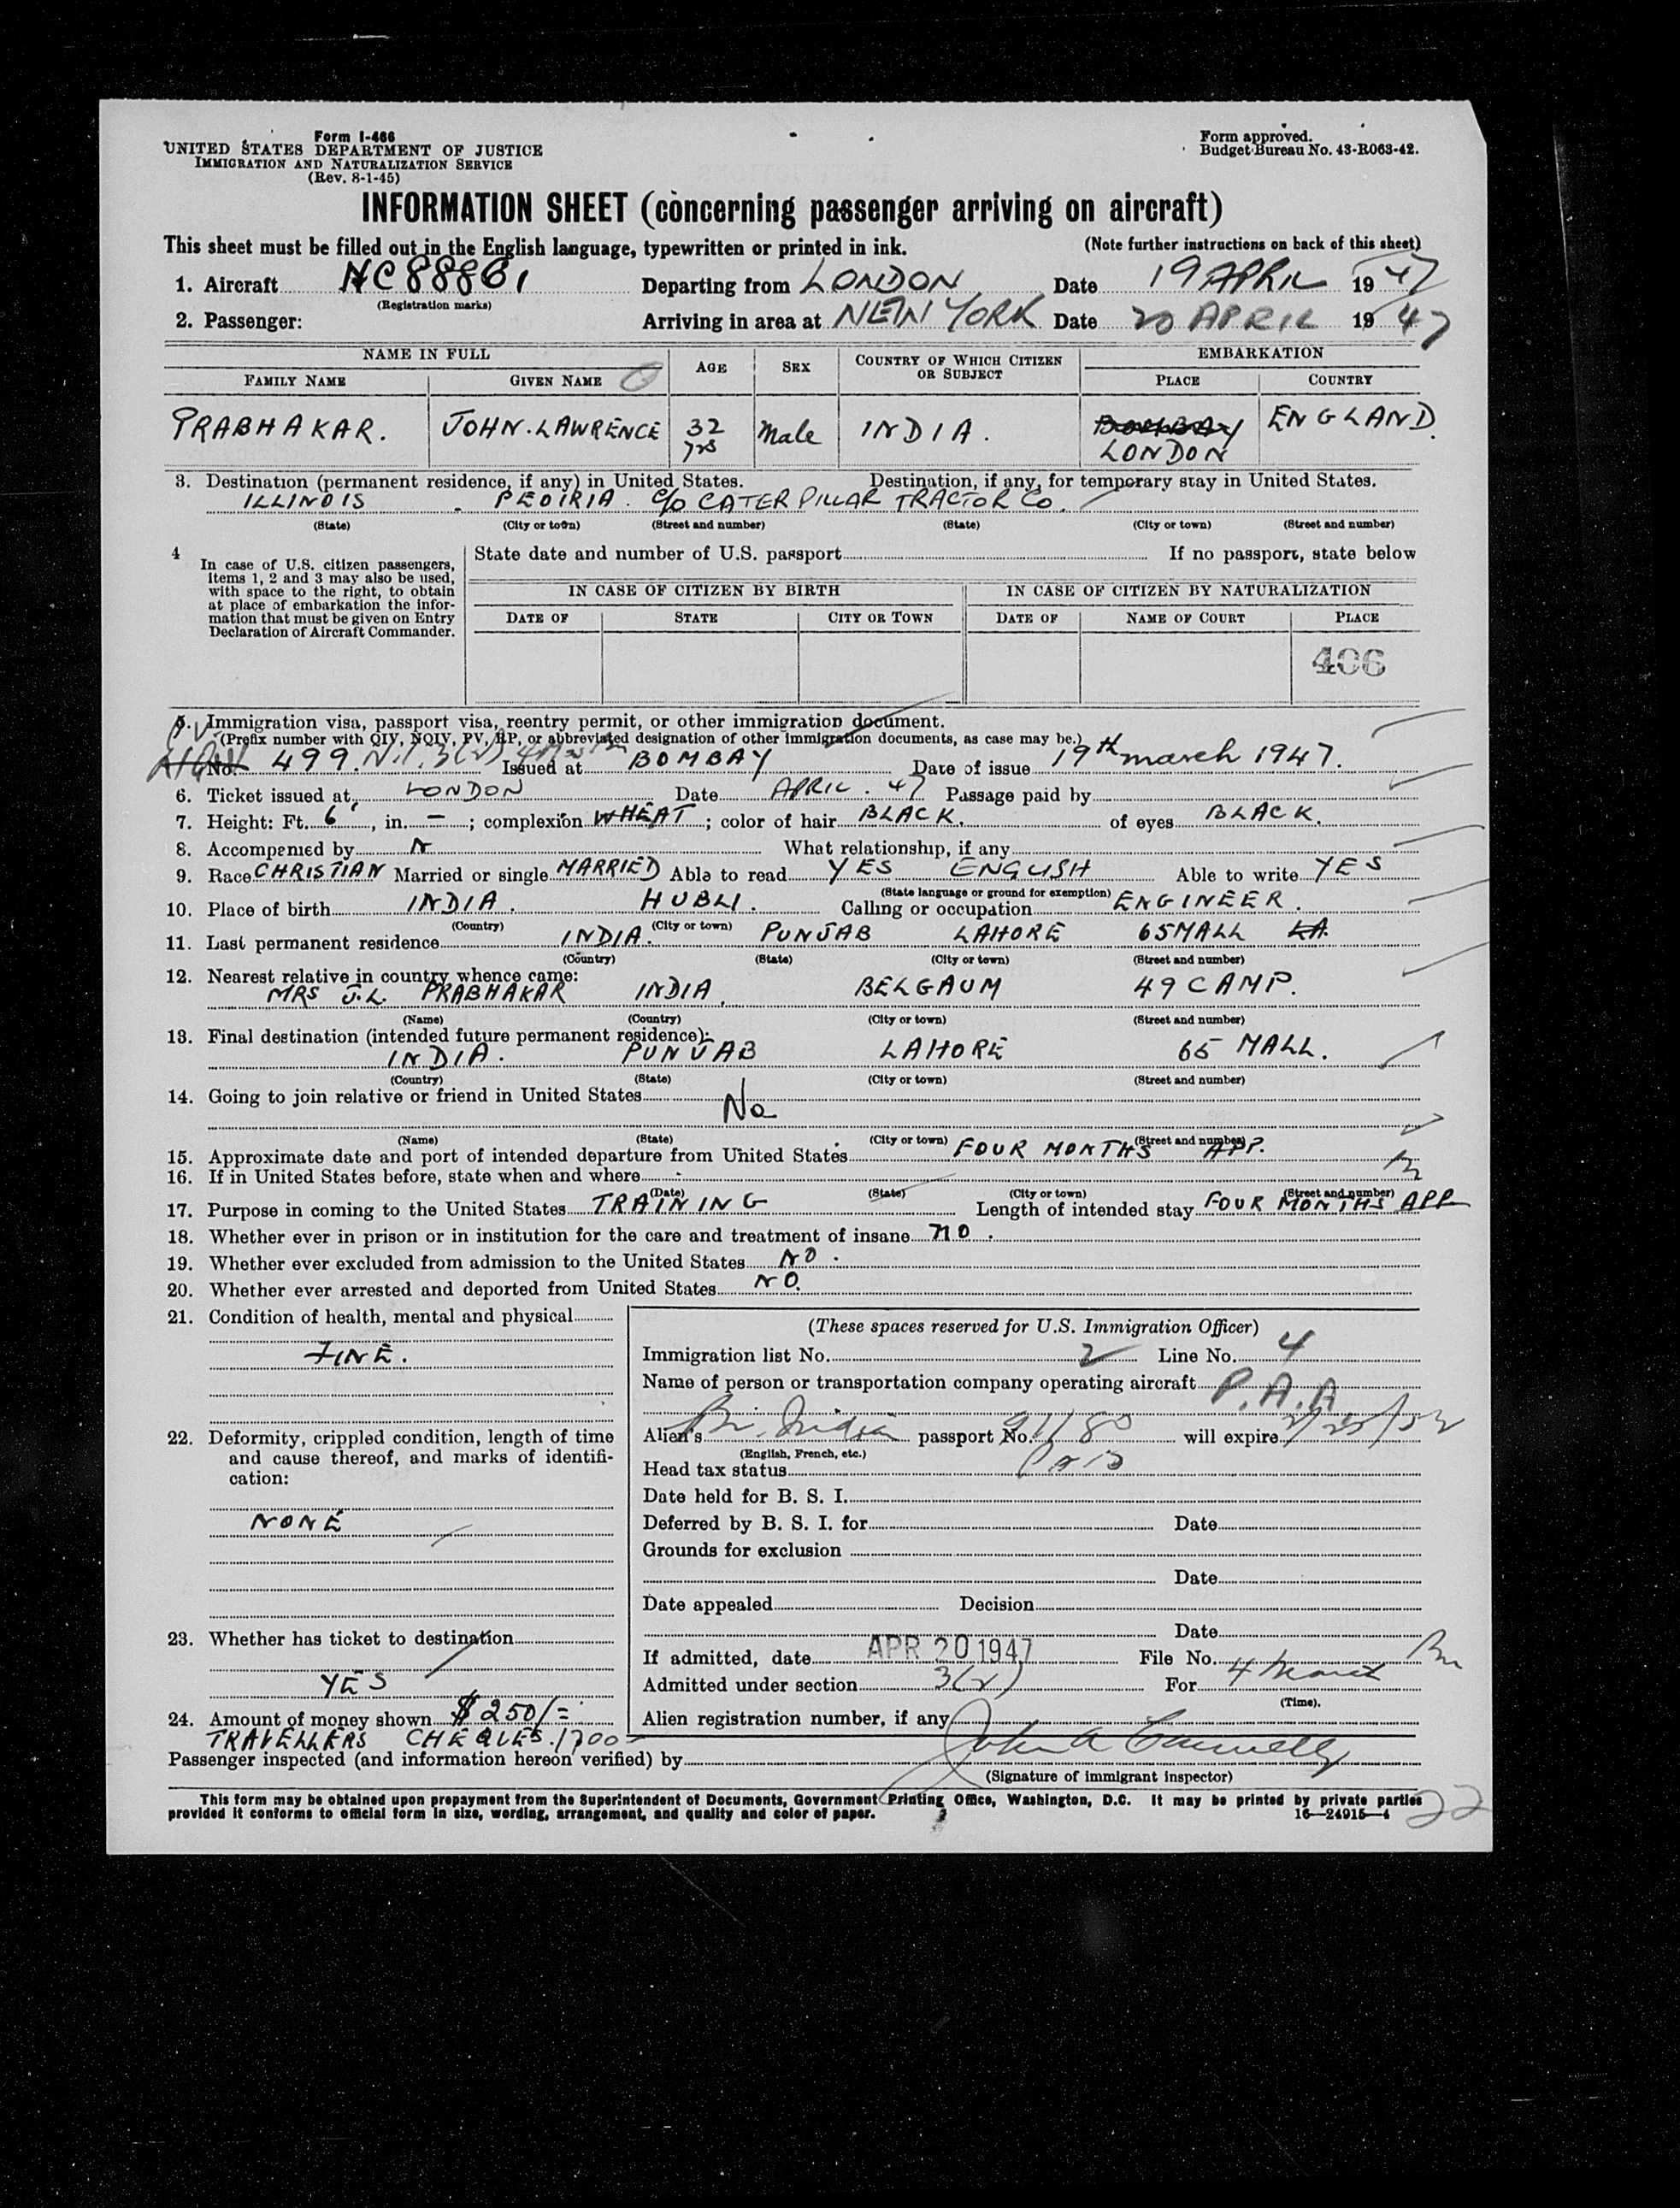 Form I-466
UNITED STATES DEPARTMENT OF JUSTICE
IMMIGRATION AND NATURALIZATION SERVICE
(Rev. 8-1-45)
Form approved.
Budget Bureau No. 43-R063-42.
INFORMATION SHEET (concerning passenger arriving on aircraft)
This sheet must be filled out in the English language, typewritten or printed in ink. (Note further instructions on back of this sheet)
1. Aircraft NC88861 Departing from LONDON Date 19 APRIL 1947
(Registration marks)
2. Passenger: Arriving in area at NEW YORK Date 20 APRIL 1947
NAME IN FULL AGE SEX COUNTRY OF WHICH CITIZEN OR SUBJECT EMBARKATION
FAMILY NAME GIVEN NAME PLACE COUNTRY
PRABHAKAR. JOHN.LAWRENCE 32 yrs Male INDIA. BOMBAY ENGLAND.
LONDON
3. Destination (permanent residence, if any) in United States. Destination, if any, for temporary stay in United States.
ILLINOIS PEOIRIA. C/O CATERPILLAR TRACTOR CO.
(State) (City or town) (Street and number) (State) (City or town) (Street and number)
4 In case of U.S. citizen passengers, items 1, 2 and 3 may also be used, with space to the right, to obtain at place of embarkation the information that must be given on Entry Declaration of Aircraft Commander.
State date and number of U.S. passport If no passport, state below
IN CASE OF CITIZEN BY BIRTH IN CASE OF CITIZEN BY NATURALIZATION
DATE OF STATE CITY OR TOWN DATE OF NAME OF COURT PLACE
406
5. Immigration visa, passport visa, reentry permit, or other immigration document.
P.V. (Prefix number with QIV, NQIV, PV, RP, or abbreviated designation of other immigration documents, as case may be.)
No. 499. Issued at BOMBAY Date of issue 19th march 1947.
6. Ticket issued at LONDON Date APRIL. 47 Passage paid by
7. Height: Ft. 6', in. — ; complexion WHEAT; color of hair BLACK. of eyes BLACK.
8. Accompanied by N What relationship, if any
9. Race CHRISTIAN Married or single MARRIED Able to read YES ENGLISH Able to write YES
(State language or ground for exemption)
10. Place of birth INDIA. HUBLI. Calling or occupation ENGINEER.
(Country) (City or town)
11. Last permanent residence INDIA. PUNJAB LAHORE 65 MALL
(Country) (State) (City or town) (Street and number)
12. Nearest relative in country whence came:
MRS J.L. PRABHAKAR INDIA. BELGAUM 49 CAMP.
(Name) (Country) (City or town) (Street and number)
13. Final destination (intended future permanent residence):
INDIA. PUNJAB LAHORE 65 MALL.
(Country) (State) (City or town) (Street and number)
14. Going to join relative or friend in United States No
(Name) (State) (City or town) (Street and number)
15. Approximate date and port of intended departure from United States FOUR MONTHS APP.
16. If in United States before, state when and where
(Date) (State) (City or town) (Street and number)
17. Purpose in coming to the United States TRAINING Length of intended stay FOUR MONTHS APP
18. Whether ever in prison or in institution for the care and treatment of insane NO.
19. Whether ever excluded from admission to the United States NO.
20. Whether ever arrested and deported from United States NO.
21. Condition of health, mental and physical
FINE.
22. Deformity, crippled condition, length of time and cause thereof, and marks of identification:
NONE
23. Whether has ticket to destination
YES
24. Amount of money shown $250/=
TRAVELLERS CHEQUES.
(These spaces reserved for U.S. Immigration Officer)
Immigration list No. 2 Line No. 4
Name of person or transportation company operating aircraft P.A.A
Alien's Br. India passport No. 91180 will expire
(English, French, etc.)
Head tax status Paid
Date held for B. S. I.
Deferred by B. S. I. for Date
Grounds for exclusion
Date
Date appealed Decision
Date
If admitted, date APR 20 1947 File No.
Admitted under section 3(2) For 4
(Time).
Alien registration number, if any
Passenger inspected (and information hereon verified) by John A
(Signature of immigrant inspector)
This form may be obtained upon prepayment from the Superintendent of Documents, Government Printing Office, Washington, D.C. It may be printed by private parties
provided it conforms to official form in size, wording, arrangement, and quality and color of paper. 16—24915—4
22